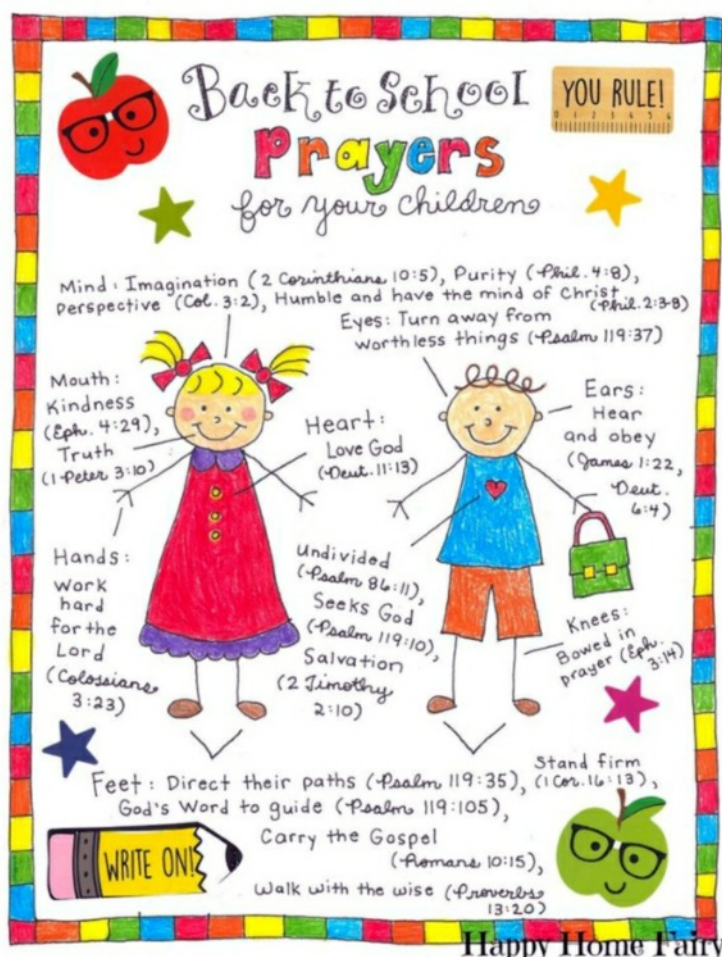 Back to School
YOU RULE!
0 1 2 3 4 5 6
Prayers
for your children
Mind: Imagination (2 Corinthians 10:5), Purity (Phil. 4:8),
Perspective (Col. 3:2), Humble and have the mind of Christ
(Phil. 2:3-8)
Eyes: Turn away from
worthless things (Psalm 119:37)
Mouth:
Kindness
(Eph. 4:29),
Truth
(1 Peter 3:10)
Heart:
Love God
(Deut. 11:13)
Ears:
Hear
and obey
(James 1:22,
Deut.
6:4)
Hands:
Work
hard
for the
Lord
(Colossians
3:23)
Undivided
(Psalm 86:11),
Seeks God
(Psalm 119:10),
Salvation
(2 Timothy
2:10)
Knees:
Bowed in
prayer (Eph.
3:14)
Feet: Direct their paths (Psalm 119:35),
Stand firm
(1 Cor. 16:13),
God's Word to guide (Psalm 119:105),
Carry the Gospel
(Romans 10:15),
Walk with the wise (Proverbs
13:20)
WRITE ON!
Happy Home Fairy